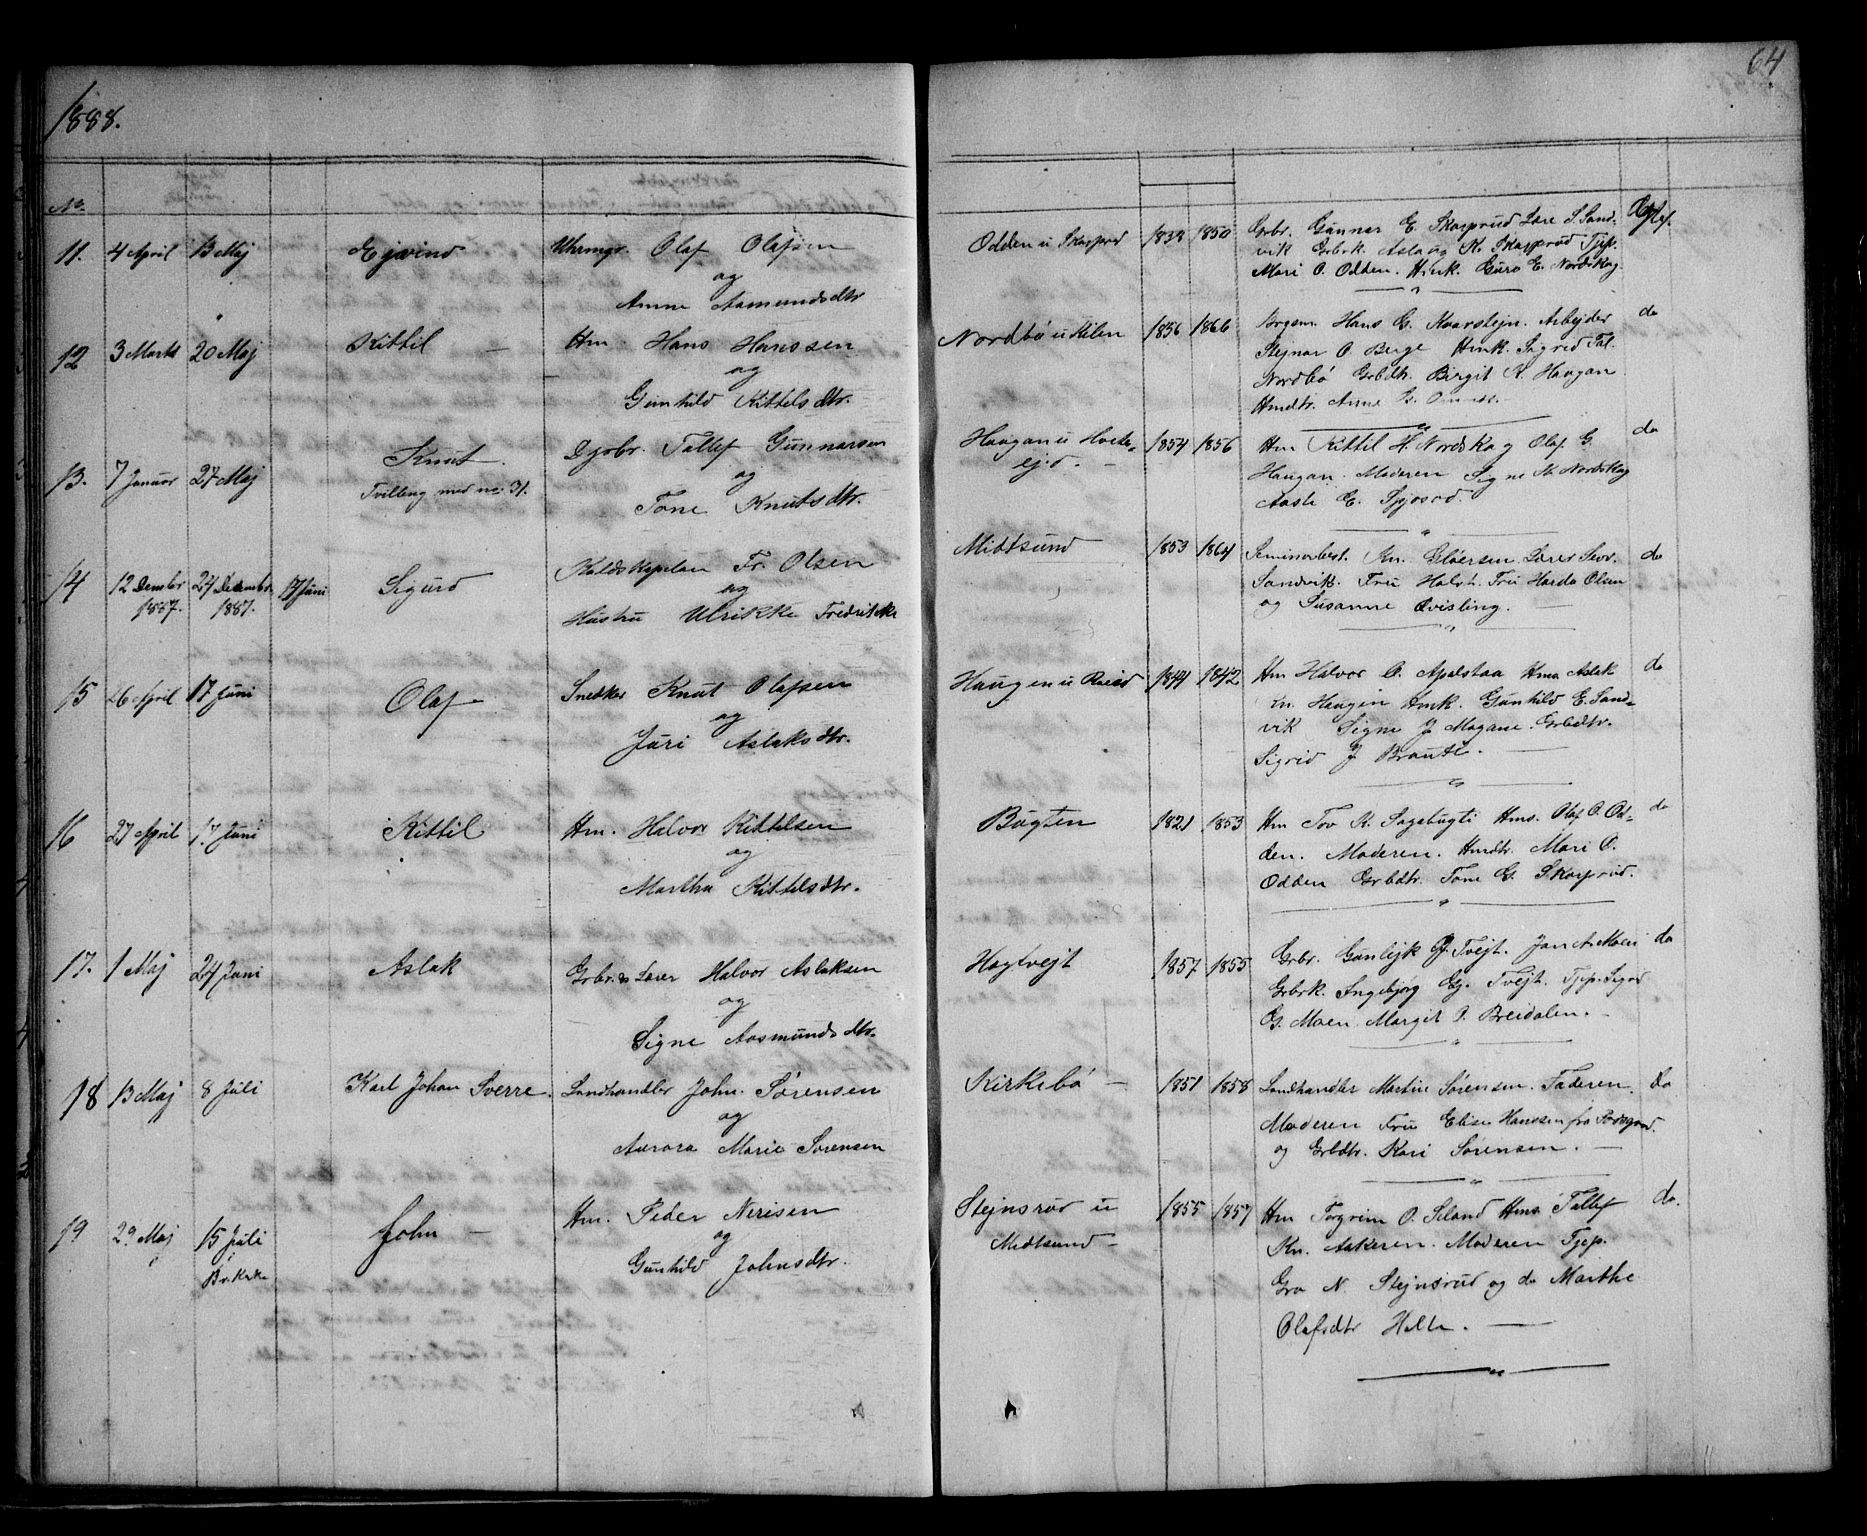 64
1888.
No.
11. 4 April 13 Maj Ejvind Uhrmgr. Olaf Olafsen
og
Anne Aamundsdtr
Odden u Skarprud 1838 1850 Grbr. Gunnar E. Skarprud Lære S. Sand-
vik Grbrk Aslaug K. Skarprud Tjep.
Mari O. Odden. Hmk. Guro E. Nordskog
12 3 Marts 20 Maj Kittil Hm. Hans Hanssen
og
Gunhild Kittelsdtr.
Nordbø u Kilen 1856 1866 Hans G. Kvarstejn. Arbejder
Stejnar O. Berge Hmk. Sigrid Tal.
Nordbø Grbdtr. Birgit K. Haugan
Hmdtr. Anne
do
13. 7 Januar 27 Maj Knut
Tvilling med no: 31.
Gjrbr. Tallef Gunnarsen
og
Tone Knutsdtr.
Haugan u
ejd. 1854 1856 Hm Kittil H. Nordskog Olaf G.
Haugan. Moderen Signe Nordskog
Aaste E.
do
14 12 Dember 27 Decembr. 17 Juni Sigurd
1887. 1887.
Kaldskapelan Fr. Olsen
og
Hustru Ulrikke Fredrikke
Midtsund 1853 1864 Seminarbest. Kn. Gløersen Lærer
Sandvik. Fru Holst. Fru Harda Olsen
og Susanne Qvisling.
do
15 26 April 17 Juni Olaf Snedker Knut Olafsen
og
Juri Aslaksdtr.
Haugen u 1844 1842 Hm Halvor O. Apalstaa Hms Aslak
Kn. Haugen Hmk. Gunhild E. Sand-
vik Signe J Mogane. Grbdtr.
Sigrid J Braute.
do
16 27 April 17. Juni Kittil Hm. Halvor Kittelsen
og
Martha Kittelsdtr.
Bugten 1821 1853 Hm Tov K. Sagebugti Hms. Olaf O. Od-
den. Moderen. Hmdtr. Mari O.
Odden Grbdtr. Tone G. Skarprud.
do
17. 1 Maj 24 Juni Aslak Grbr. & Lærer Halvor Aslaksen
og
Signe Aasmundsdtr.
Hogtvejt 1857 1855 Grbr. Gunlejk Gj Tvejt. Jon A. Moen
Grbrk. Ingebjørg Gj. Tvejt. Tjep. Sigrid
G. Moen Margit P. Breidalen.
do
18 13 Maj 8 Juli Karl Johan Sverre. Landhandler John. Sørensen
og
Aurora Marie Sørensen
Kirkebø 1851 1858 Landhandler Martin Sørensen. Faderen.
Moderen Fru Elise Hanssen fra
og Grbdtr. Kari Sørensen.
do
19 29 Maj 15 Juli John Hm. Peder Nerisen
og
Gunhild Johnsdtr.
Stejnsrud u
Midtsund 1855 1857 Hm Torgrim O. Seland Hms Tallef
Kn. Askeren. Moderen Tjep.
Gro N. Stejnsrud og do Marthe
Olafsdtr Helte.
do.